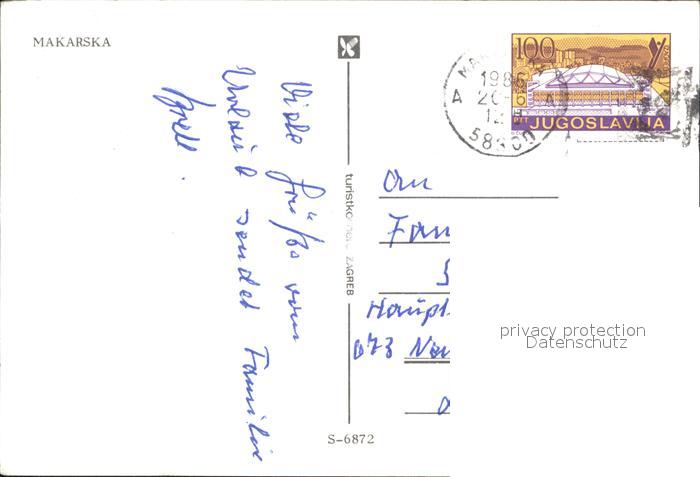 MAKARSKA
Viele Grüße vom
Urlaub sendet Familie
turist
ZAGREB
S-6872
100
PTT JUGOSLAVIJA
1986
20
12
58300
A
A
An
Fam
Haupt
073
privacy protection
Datenschutz